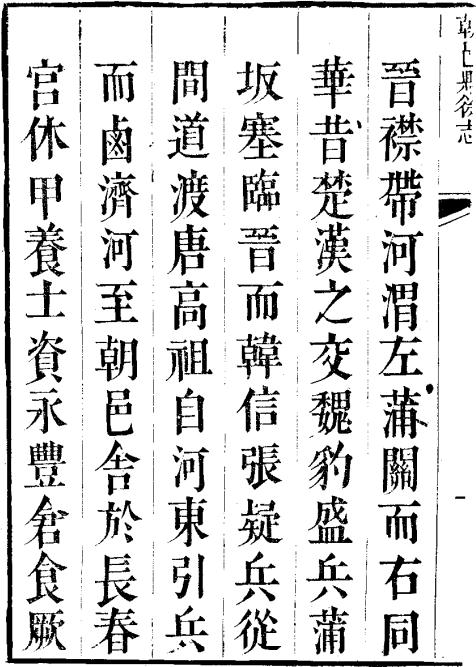 朝邑縣後志
一
晉襟帶河渭左蒲關而右同
華昔楚漢之交魏豹盛兵蒲
坂塞臨晉而韓信張疑兵從
間道渡唐高祖自河東引兵
而鹵濟河至朝邑舍於長春
宮休甲養士資永豐倉食厥